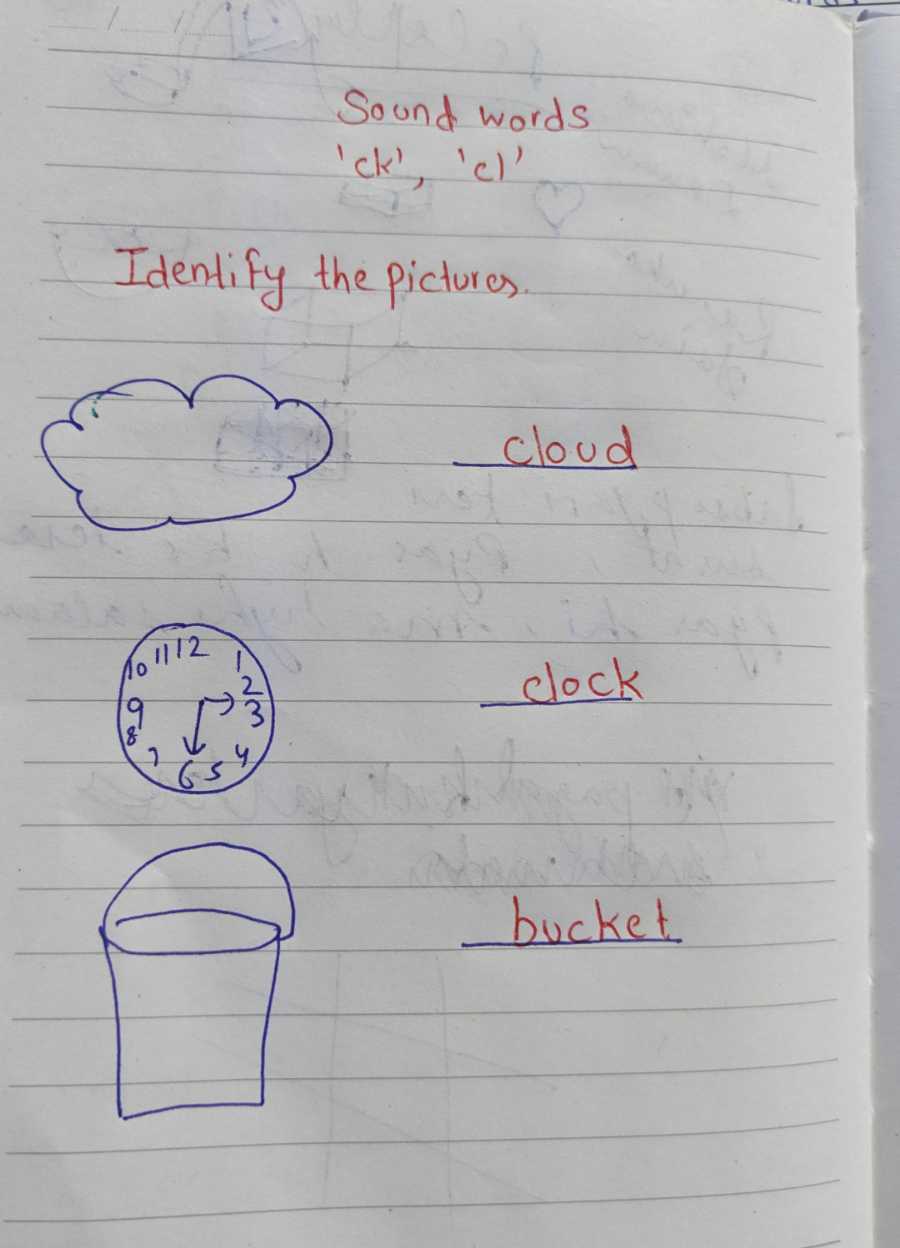 Sound words
'ck', 'cl'
Identify the pictures.
cloud
10 11 12 1
2
9 3
8
7 6 5 4
clock
bucket